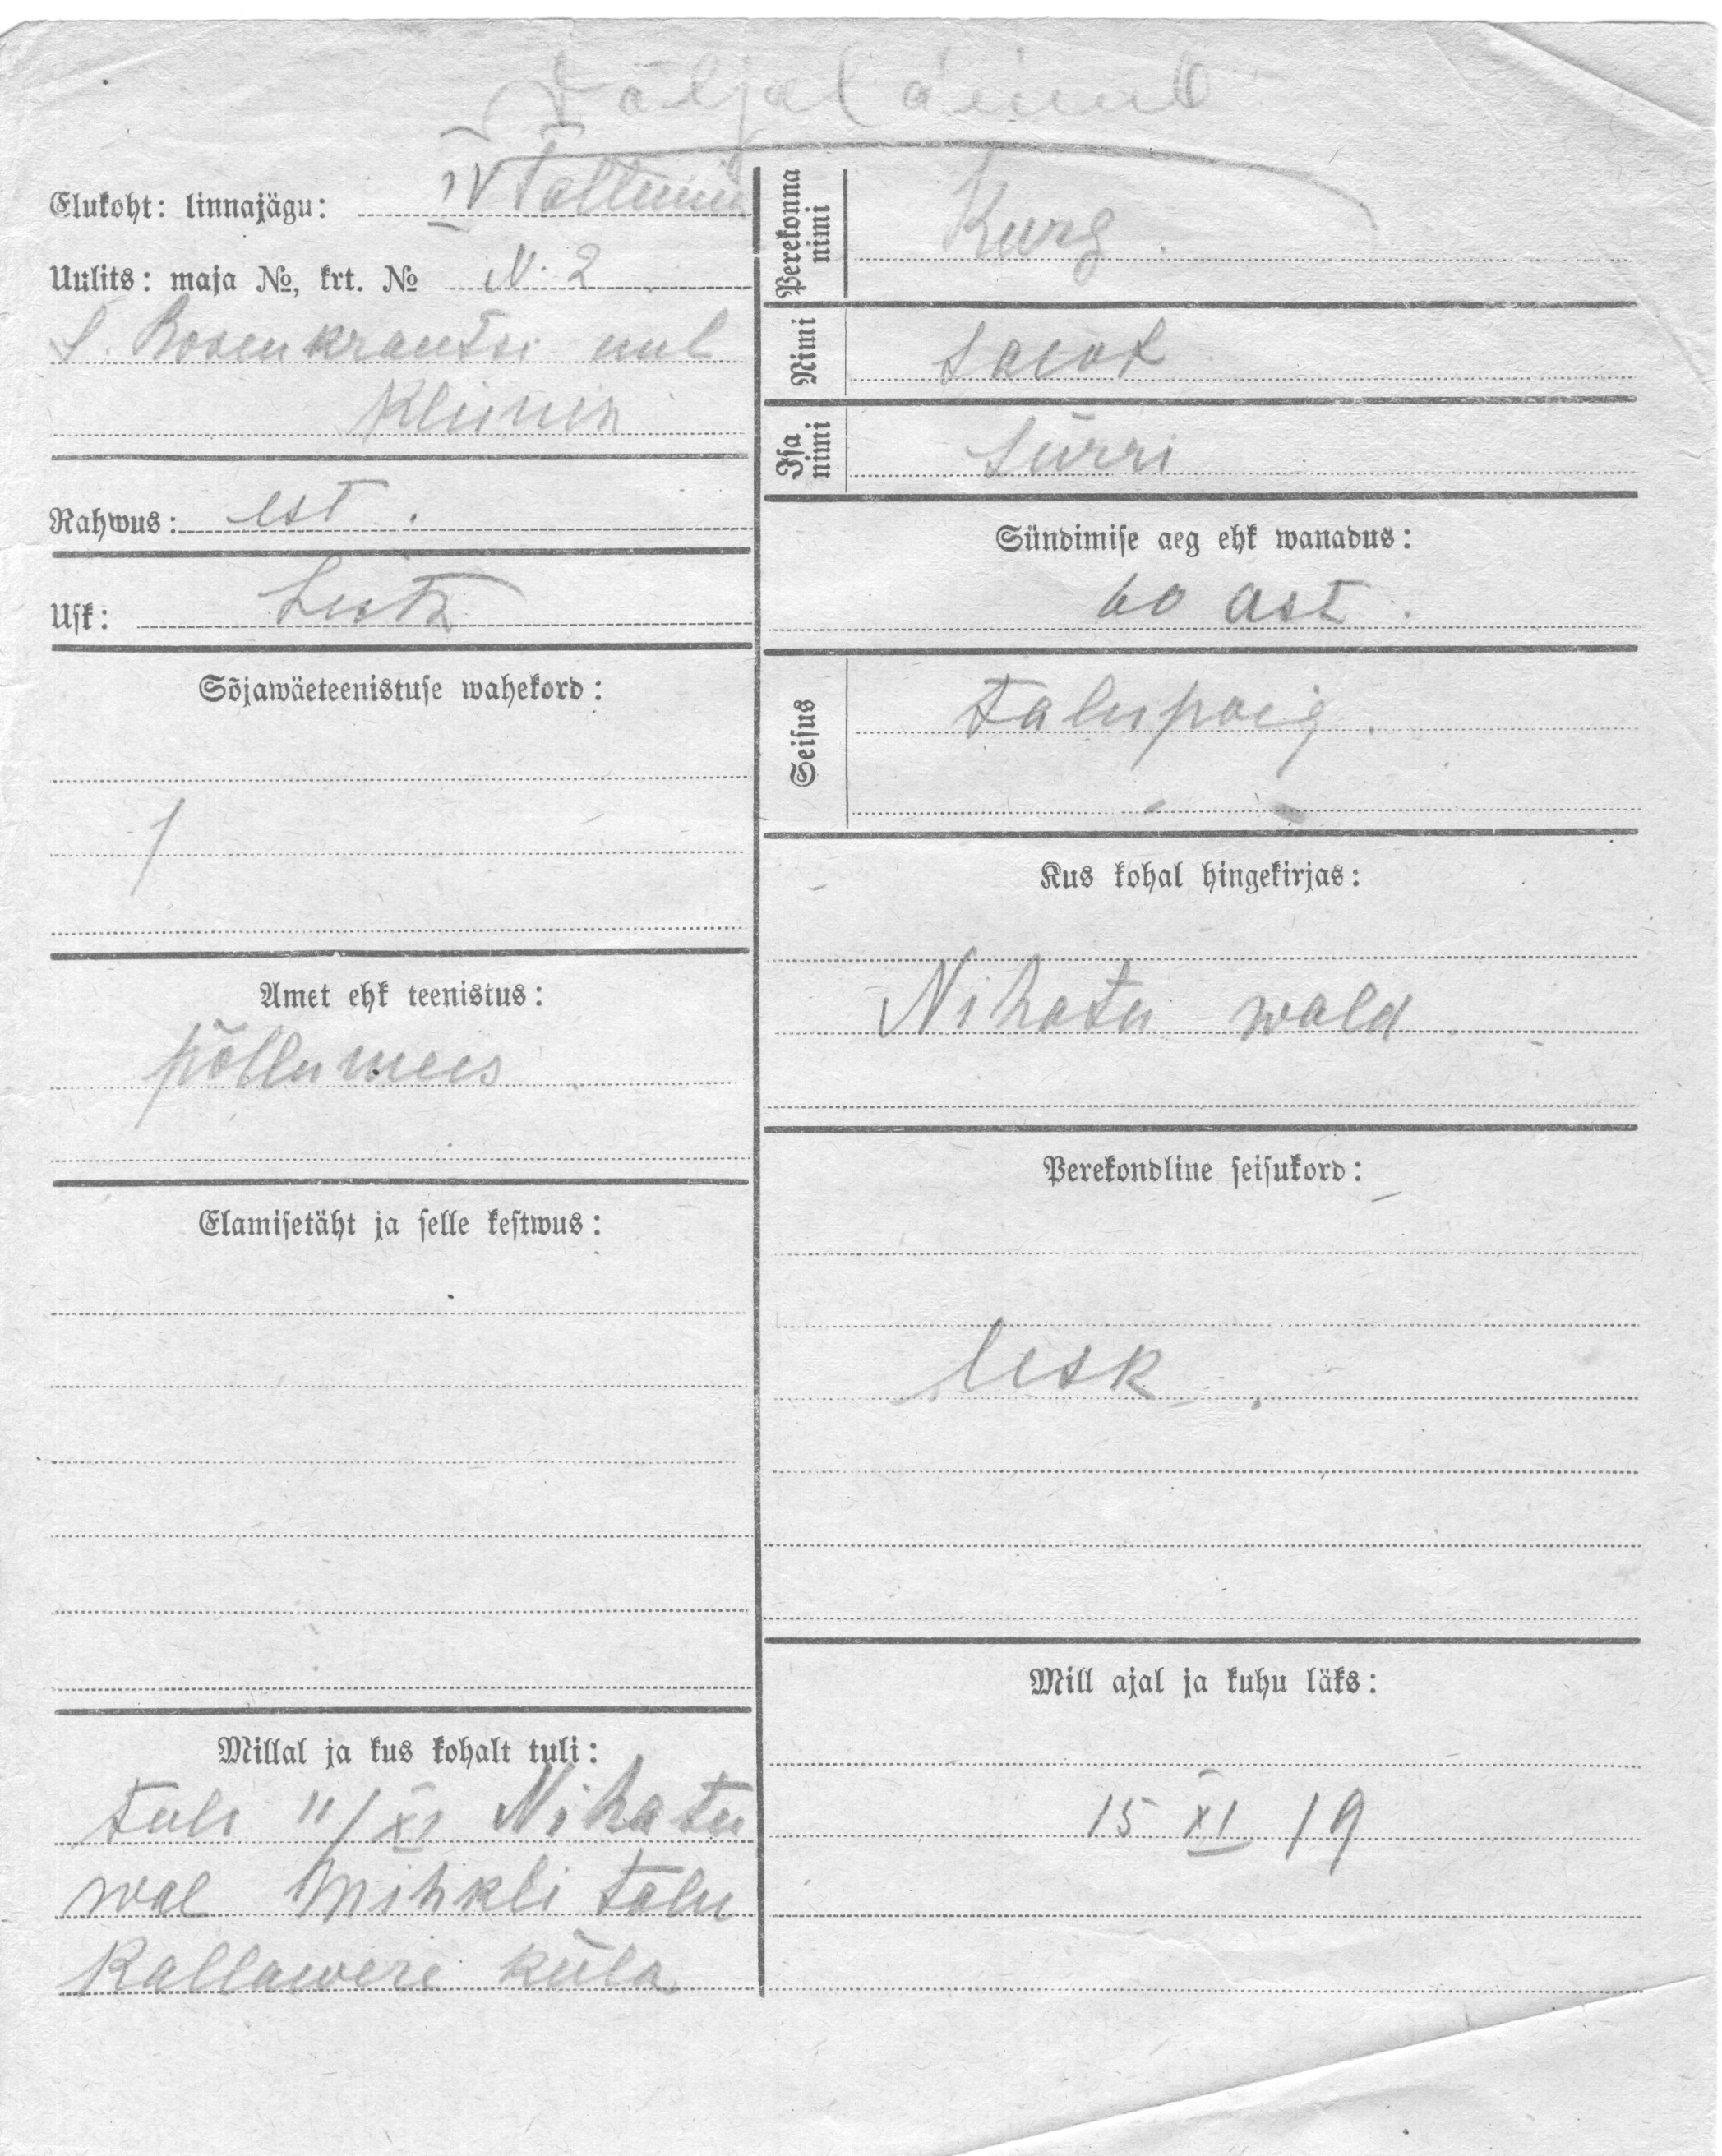 Wäljaläinud
Elukoht: linnajagu: IV Tallinna
Uulits: maja №, krt. № N. 2
S. Rosenkrantsi uul
Kliinik
Rahwus: est.
Usk: Luth
Sõjawäeteenistuse wahekord:
Amet ehk teenistus:
põllumees
Elamisetäht ja selle kestwus:
Millal ja kus kohalt tuli:
tuli 11/XI Nihatu
wal Mihkli talu
Kallawere küla
Perekonna nimi Kurg.
Nimi Jacob
Isa nimi Jürri
Sündimise aeg ehk wanadus:
60 ast.
Seisus talupoig.
Kus kohal hingekirjas:
Nihatu wald
Perekondline seisukord:
lesk.
Mill ajal ja kuhu läks:
15 XI 19